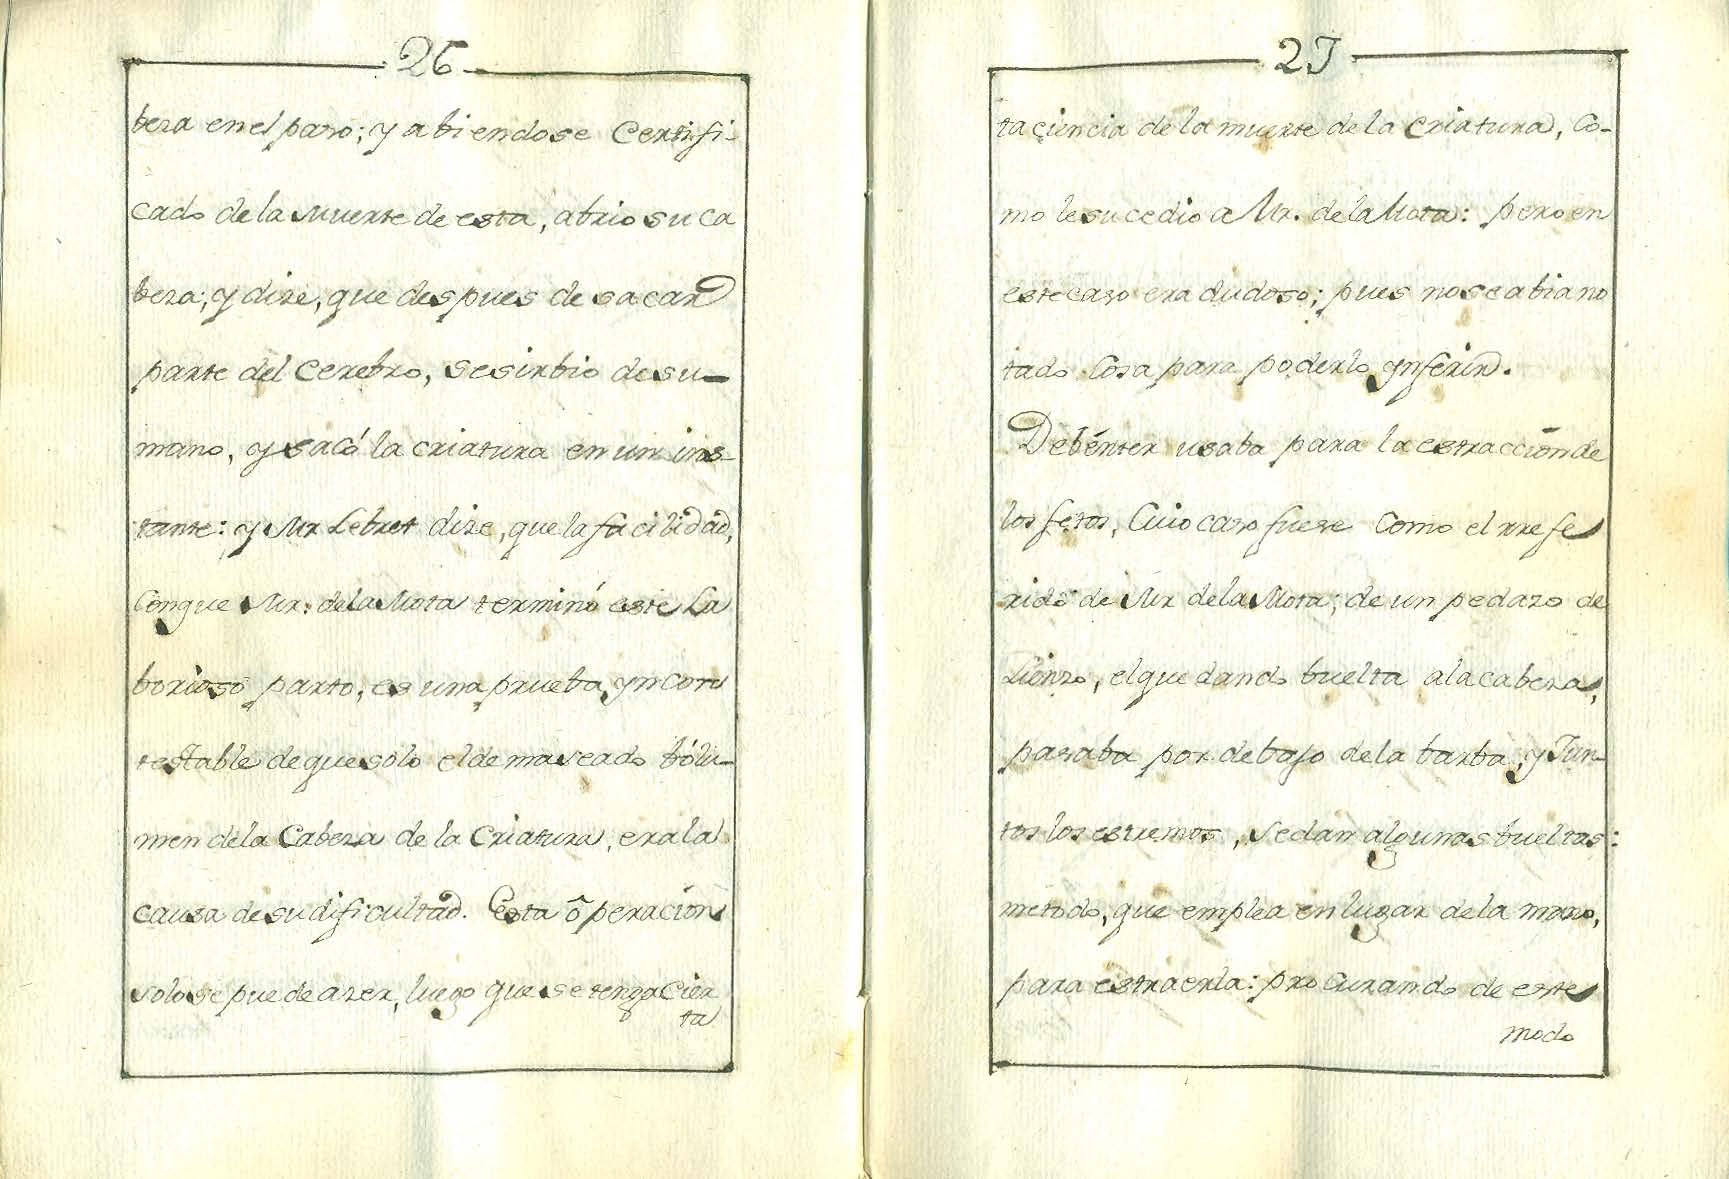 26
beza en el paso; y abiendose Certifi-
cado de la Muerte de esta, abrio su ca
beza; y dize, que despues de sacar
parte del Cerebro, se sirbio de su
mano, y sacó la criatura en un ins-
tante: y Mr Lebret dize, que la facilidad,
Con que Mr. de la Mota terminó este La
borioso parto, es una prueba yncon
testable de que solo el demaseado bólu-
men de la Cabeza de la Criatura, era la
causa de su dificultad. Esta óperacion
solo se puede azer, luego que se tenga Cier
ta
27
ta ciencia de la muerte de la Criatura, Co-
mo le sucedio a Mr. de la Mota: pero en
este caso era dudoso; pues no se abia no
tado Cosa para poderlo ynferir.
Debénter usaba para la estraccion de
los fetos, Cuio caso fuese Como el rrefe
rido de Mr de la Mota; de un pedazo de
Lienzo, el que dando buelta a la cabeza,
pasaba por debajo de la barba, y Jun-
tos los estremos, se dan algunas bueltas:
metodo, que emplea en lugar de la mano,
para estraerla: proCurando de este
modo